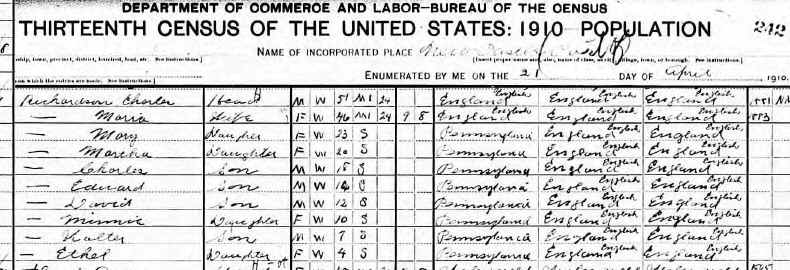 DEPARTMENT OF COMMERCE AND LABOR—BUREAU OF THE CENSUS
THIRTEENTH CENSUS OF THE UNITED STATES: 1910 POPULATION
242
NAME OF INCORPORATED PLACE
ENUMERATED BY ME ON THE 21 DAY OF April 1910.
Richardson Charles Head M W 51 M1 24 England English England English England English 1881
— Maria Wife F W 46 M1 24 9 8 England English England English England English 1883
— Mary Daughter F W 23 S Pennsylvania England English England English
— Martha Daughter F W 20 S Pennsylvania England English England English
— Charles Son M W S Pennsylvania England English England English
— Edward Son M W S Pennsylvania England English England English
— David Son M W 12 S Pennsylvania England English England English
— Minnie Daughter F W 10 S Pennsylvania England English England English
— Son M W 7 S Pennsylvania England English England English
— Ethel Daughter F W 4 S Pennsylvania England English England English